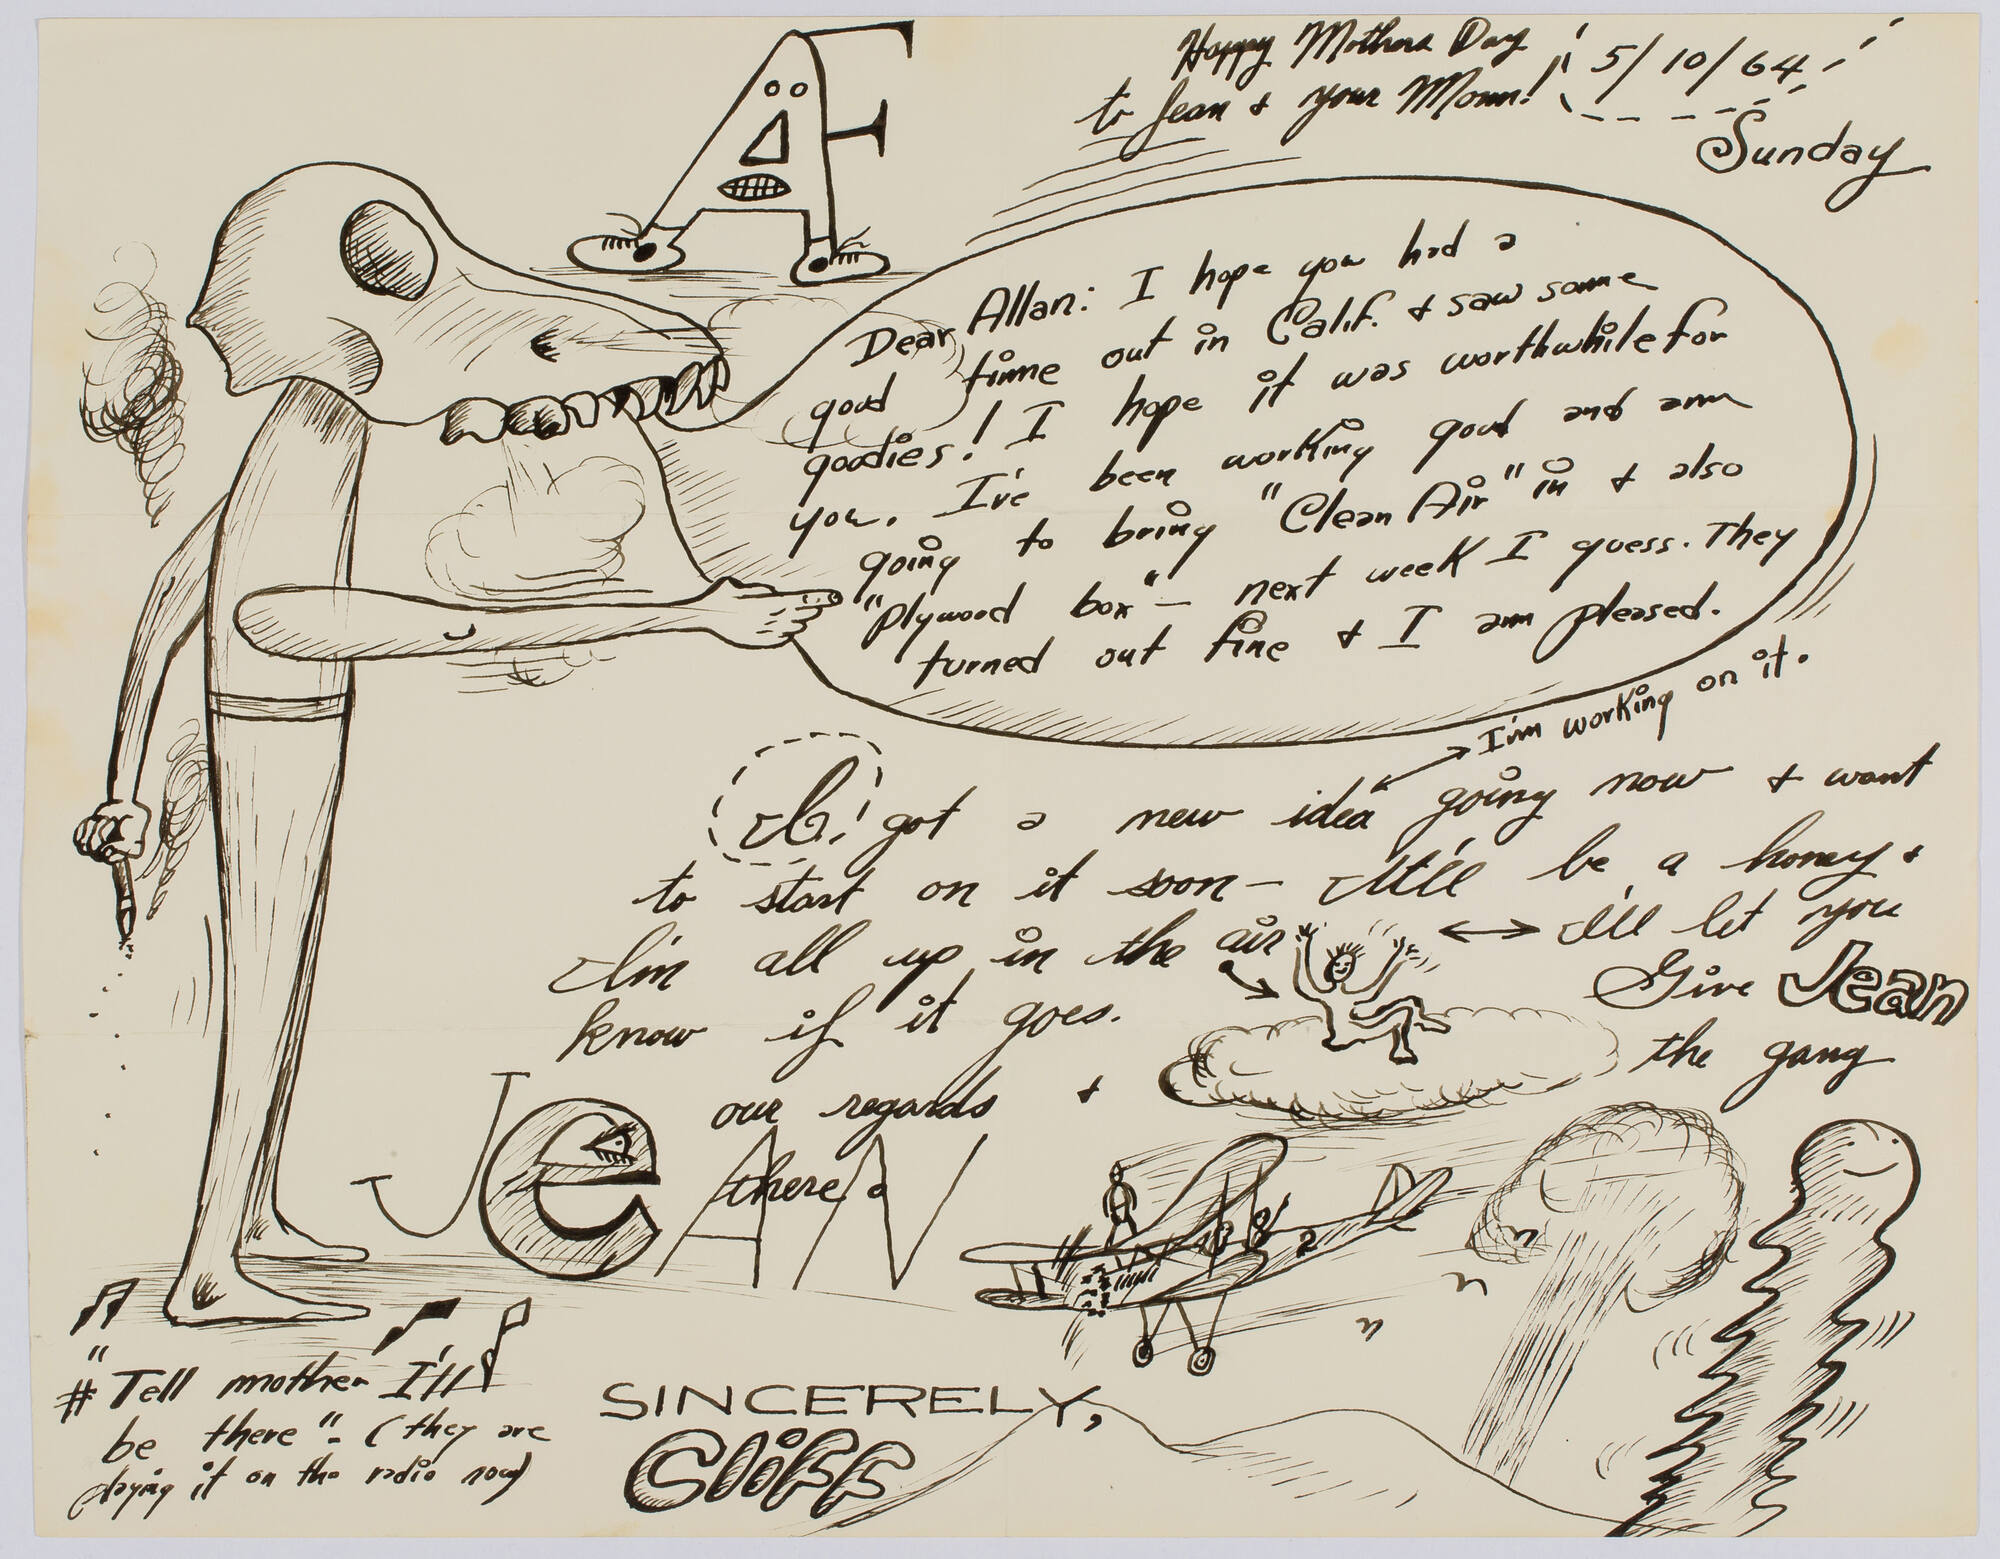 Happy Mothers Day
to Jean & your Mom!
5/10/64
Sunday
AF
Dear Allan: I hope you had a
good time out in Calif. & saw some
goodies! I hope it was worthwhile for
you. I've been working good and am
going to bring "Clean Air" in & also
"plywood box" — next week I guess. They
turned out fine & I am pleased.
I'm working on it.
I got a new idea going now & want
to start on it soon — It'll be a honey &
I'm all up in the air I'll let you
know if it goes. Give Jean
our regards & the gang
there.
JeAN
2
"Tell mother I'll
be there" - (they are
playing it on the radio now)
SINCERELY,
Cliff